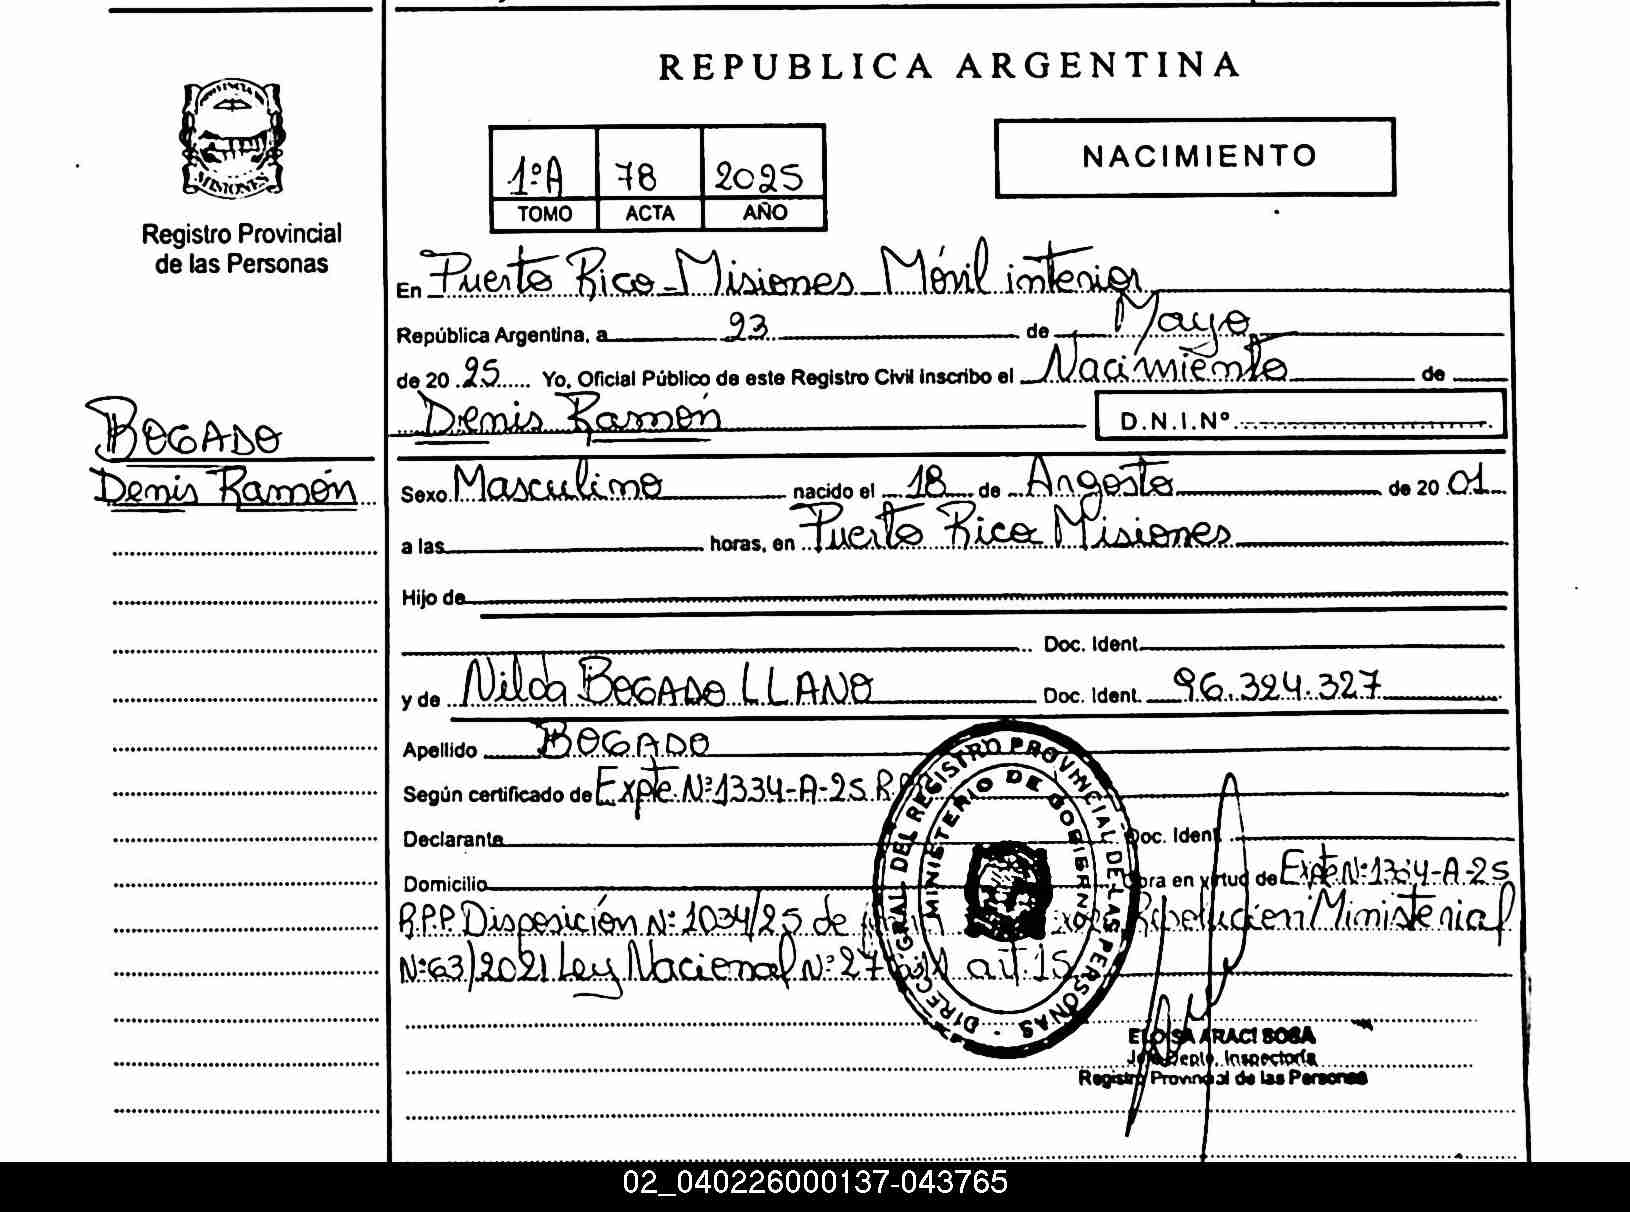 REPUBLICA ARGENTINA
PROVINCIA DE
MISIONES
Registro Provincial
de las Personas
1ºA 78 2025
TOMO ACTA AÑO
NACIMIENTO
En Puerto Rico - Misiones Móvil interior
República Argentina, a 23 de Mayo
de 20 25 Yo, Oficial Público de este Registro Civil inscribo el Nacimiento de
Denis Ramón D.N.I.Nº
BOGADO
Denis Ramón
Sexo Masculino nacido el 18 de Agosto de 20 01
a las horas, en Puerto Rico Misiones
Hijo de
Doc. Ident.
y de Nilda BOGADO LLANO Doc. Ident. 96.324.327
Apellido BOGADO
Según certificado de Expte. Nº 1334-A-25 R.
Declarante Doc. Ident.
Domicilio Obra en virtud de Expte Nº 1334-A-25
R.P.P. Disposición Nº 1034/25 de Resolución Ministerial
Nº 63/2021 Ley Nacional Nº art. 15
DIRECCIÓN GRAL. DEL REGISTRO PROVINCIAL DE LAS PERSONAS
MINISTERIO DE GOBIERNO
ELOISA ARACI SOSA
Jefe Depto. Inspectoría
Registro Provincial de las Personas
02_040226000137-043765